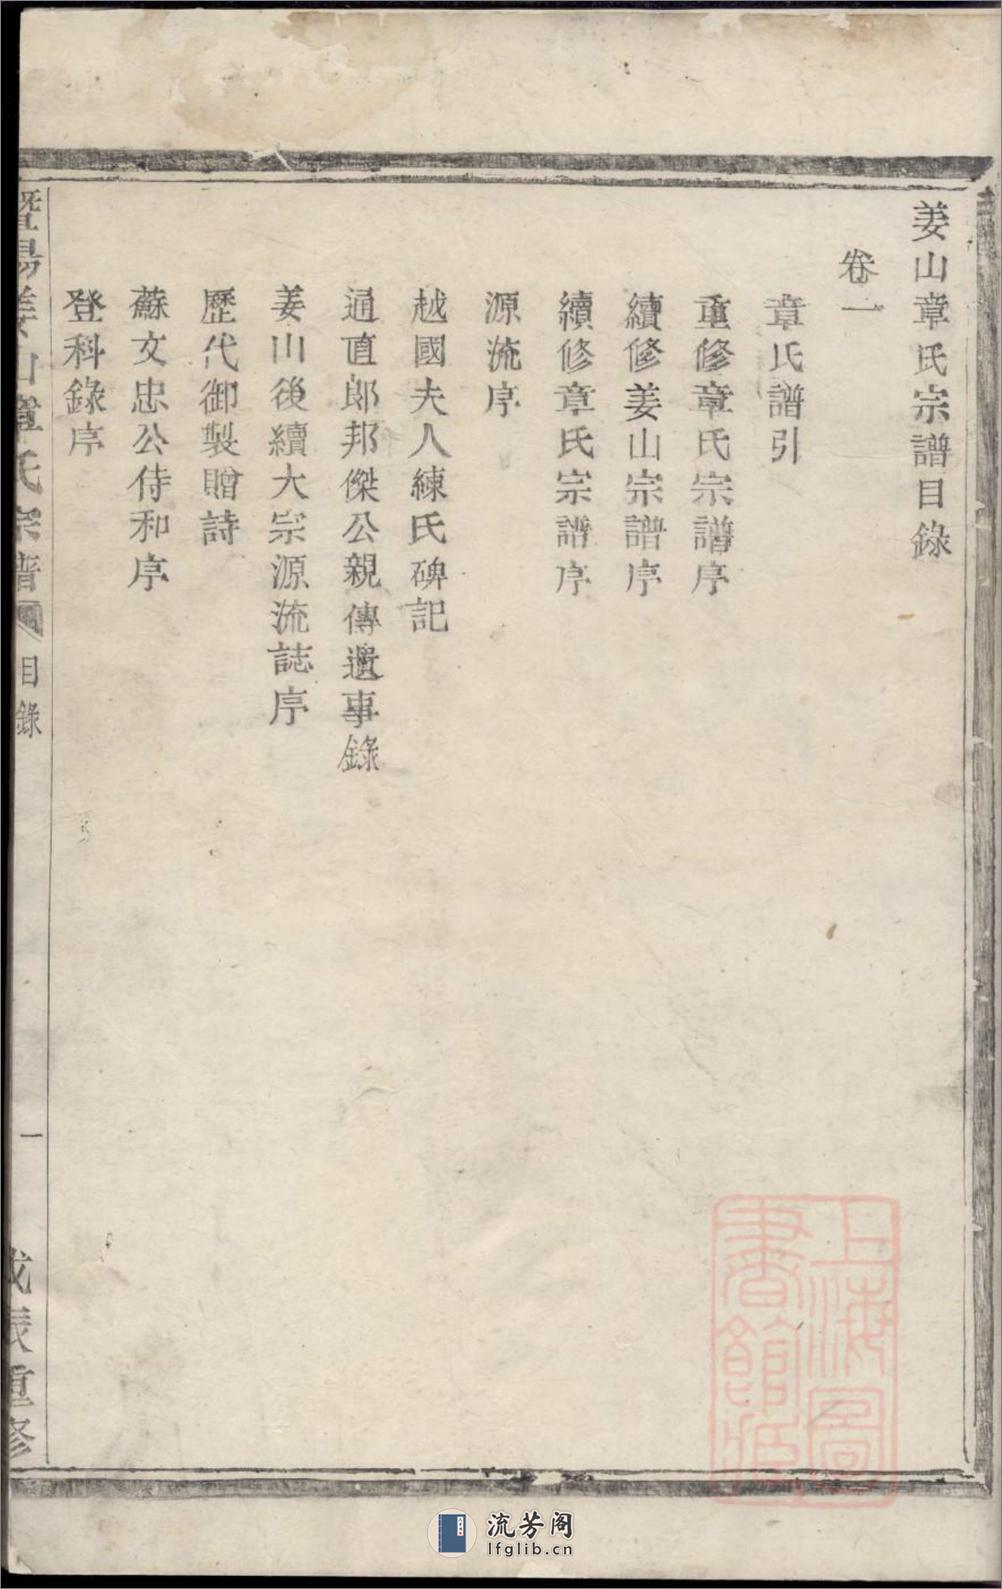 姜山章氏宗譜目錄
卷一
章氏譜引
重修章氏宗譜序
續修姜山宗譜序
續修章氏宗譜序
源流序
越國夫人練氏碑記
通直郎邦傑公親傳遺事錄
姜山後續大宗源流誌序
歷代御製贈詩
蘇文忠公侍和序
登科錄序
暨陽姜山章氏宗譜
目錄
一
戊辰重修
上海圖書館藏
流芳阁
lfglib.cn